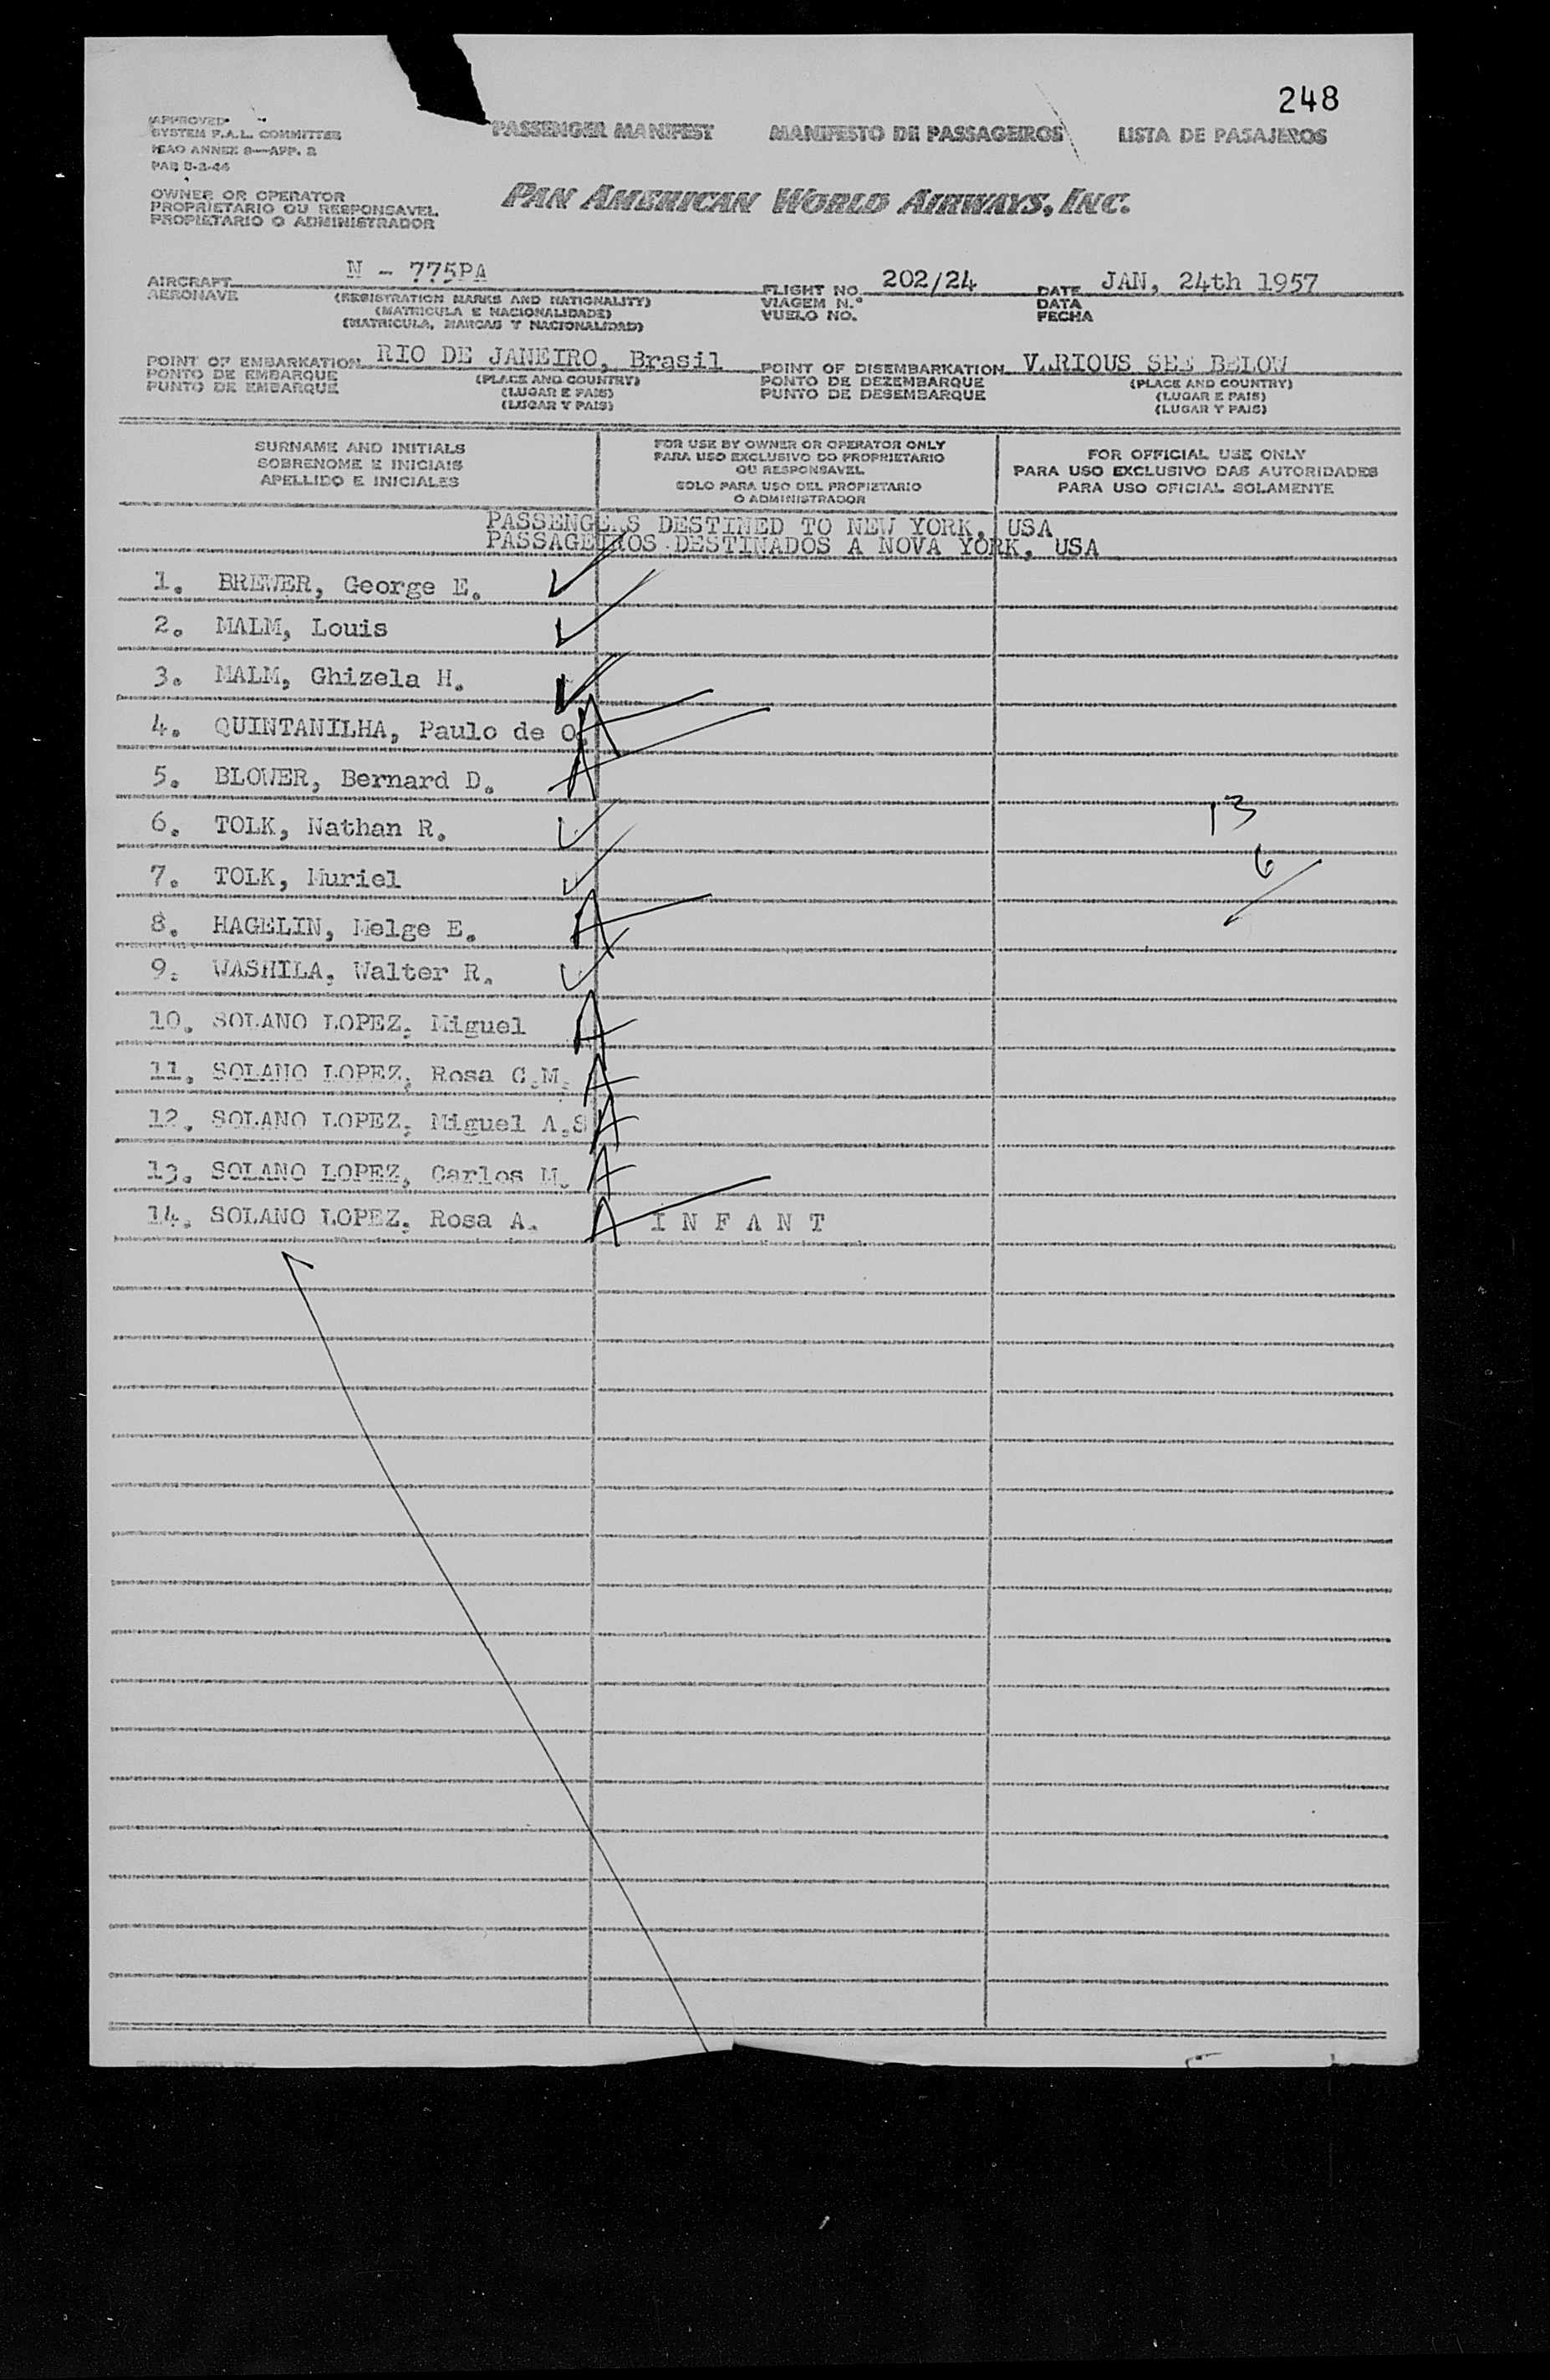 248
APPROVED
SYSTEM F.A.L. COMMITTEE
ICAO ANNEX 9—APP. 2
PASSENGER MANIFEST MANIFESTO DE PASSAGEIROS LISTA DE PASAJEROS
OWNER OR OPERATOR
PROPRIETARIO OU RESPONSAVEL
PROPIETARIO O ADMINISTRADOR
PAN AMERICAN WORLD AIRWAYS, INC.
AIRCRAFT N - 775PA FLIGHT NO. 202/24 DATE JAN, 24th 1957
AERONAVE (REGISTRATION MARKS AND NATIONALITY) VIAGEM N.º DATA
(MATRICULA E NACIONALIDADE) VUELO NO. FECHA
(MATRICULA, MARCAS Y NACIONALIDAD)
POINT OF EMBARKATION RIO DE JANEIRO, Brasil POINT OF DISEMBARKATION VARIOUS SEE BELOW
PONTO DE EMBARQUE (PLACE AND COUNTRY) PONTO DE DEZEMBARQUE (PLACE AND COUNTRY)
PUNTO DE EMBARQUE (LUGAR E PAIS) PUNTO DE DESEMBARQUE (LUGAR E PAIS)
(LUGAR Y PAIS) (LUGAR Y PAIS)
SURNAME AND INITIALS
SOBRENOME E INICIAIS
APELLIDO E INICIALES
FOR USE BY OWNER OR OPERATOR ONLY
PARA USO EXCLUSIVO DO PROPRIETARIO
OU RESPONSAVEL
SOLO PARA USO DEL PROPIETARIO
O ADMINISTRADOR
FOR OFFICIAL USE ONLY
PARA USO EXCLUSIVO DAS AUTORIDADES
PARA USO OFICIAL SOLAMENTE
PASSENGERS DESTINED TO NEW YORK, USA
PASSAGEIROS DESTINADOS A NOVA YORK, USA
1. BREWER, George E.
2. MALM, Louis
3. MALM, Ghizela H.
4. QUINTANILHA, Paulo de O.
5. BLOWER, Bernard D.
6. TOLK, Nathan R. 13
7. TOLK, Muriel 6
8. HAGELIN, Helge E.
9. WASHILA, Walter R.
10. SOLANO LOPEZ, Miguel
11. SOLANO LOPEZ, Rosa C.M.
12. SOLANO LOPEZ, Miguel A.S
13. SOLANO LOPEZ, Carlos M.
14. SOLANO LOPEZ, Rosa A. I N F A N T